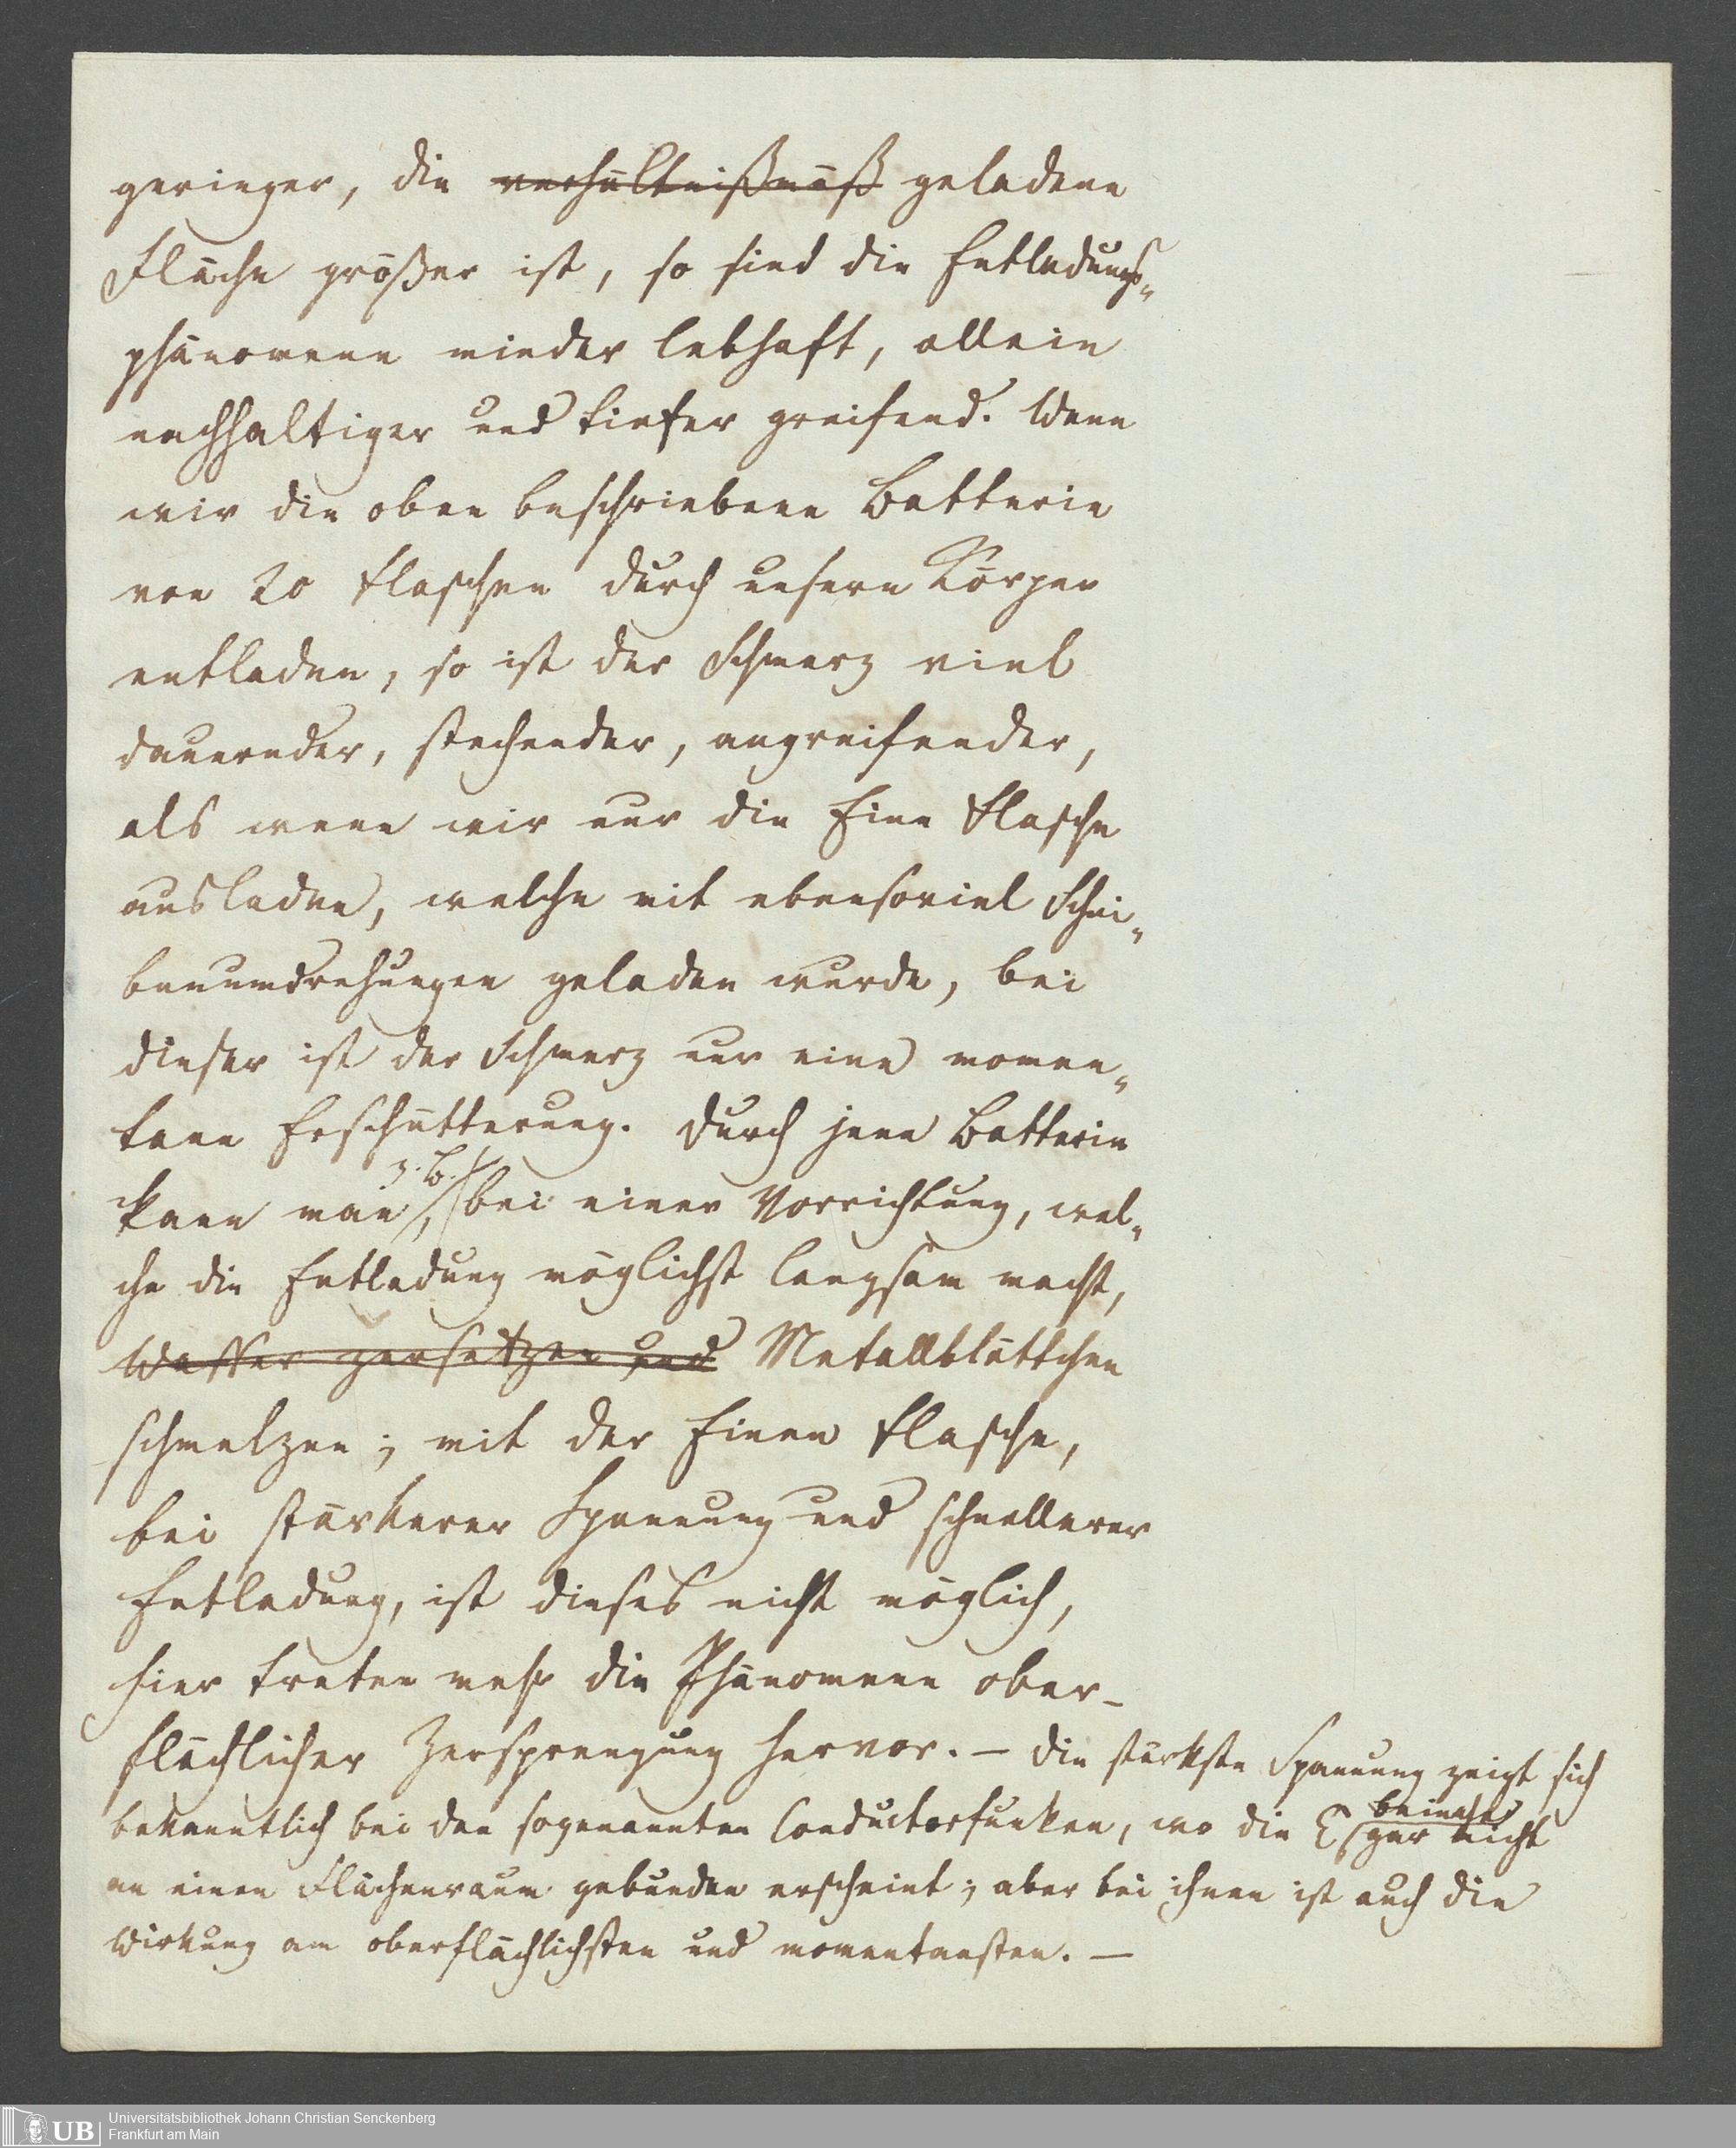 geringer, die verhältnißmäß geladene
Fläche größer ist, so sind die Entladungs-
phänomene minder lebhaft, allein
nachhaltiger und tiefer greifend. Wenn
wir die oben beschriebene Batterie
von 20 Flaschen durch unsern Körper
entladen, so ist der Schmerz viel
dauernder, stechender, angreifender,
als wenn wir nur die Eine Flasche
ausladen, welche mit ebensoviel Schei-
benumdrehungen geladen wurde, bei
dieser ist der Schmerz nur eine momen-
tane Erschütterung. Durch jene Batterie
z. B.
kann man, bei einer Vorrichtung, wel-
che die Entladung möglichst langsam macht,
Wasser zersetzen und Metallblättchen
schmelzen; mit der Einen Flasche,
bei stärkerer Spannung und schnellerer
Entladung, ist dieses nicht möglich,
hier treten mehr die Phänomene ober-
flächlicher Zersprengung hervor. – Die stärkste Spannung zeigt sich
beinahe
bekanntlich bei den sogenannten Conductorfunken, wo die E gar nicht
an einen Flächenraum gebunden erscheint; aber bei ihnen ist auch die
Wirkung am oberflächlichsten und momentansten. –
UB
Universitätsbibliothek Johann Christian Senckenberg
Frankfurt am Main